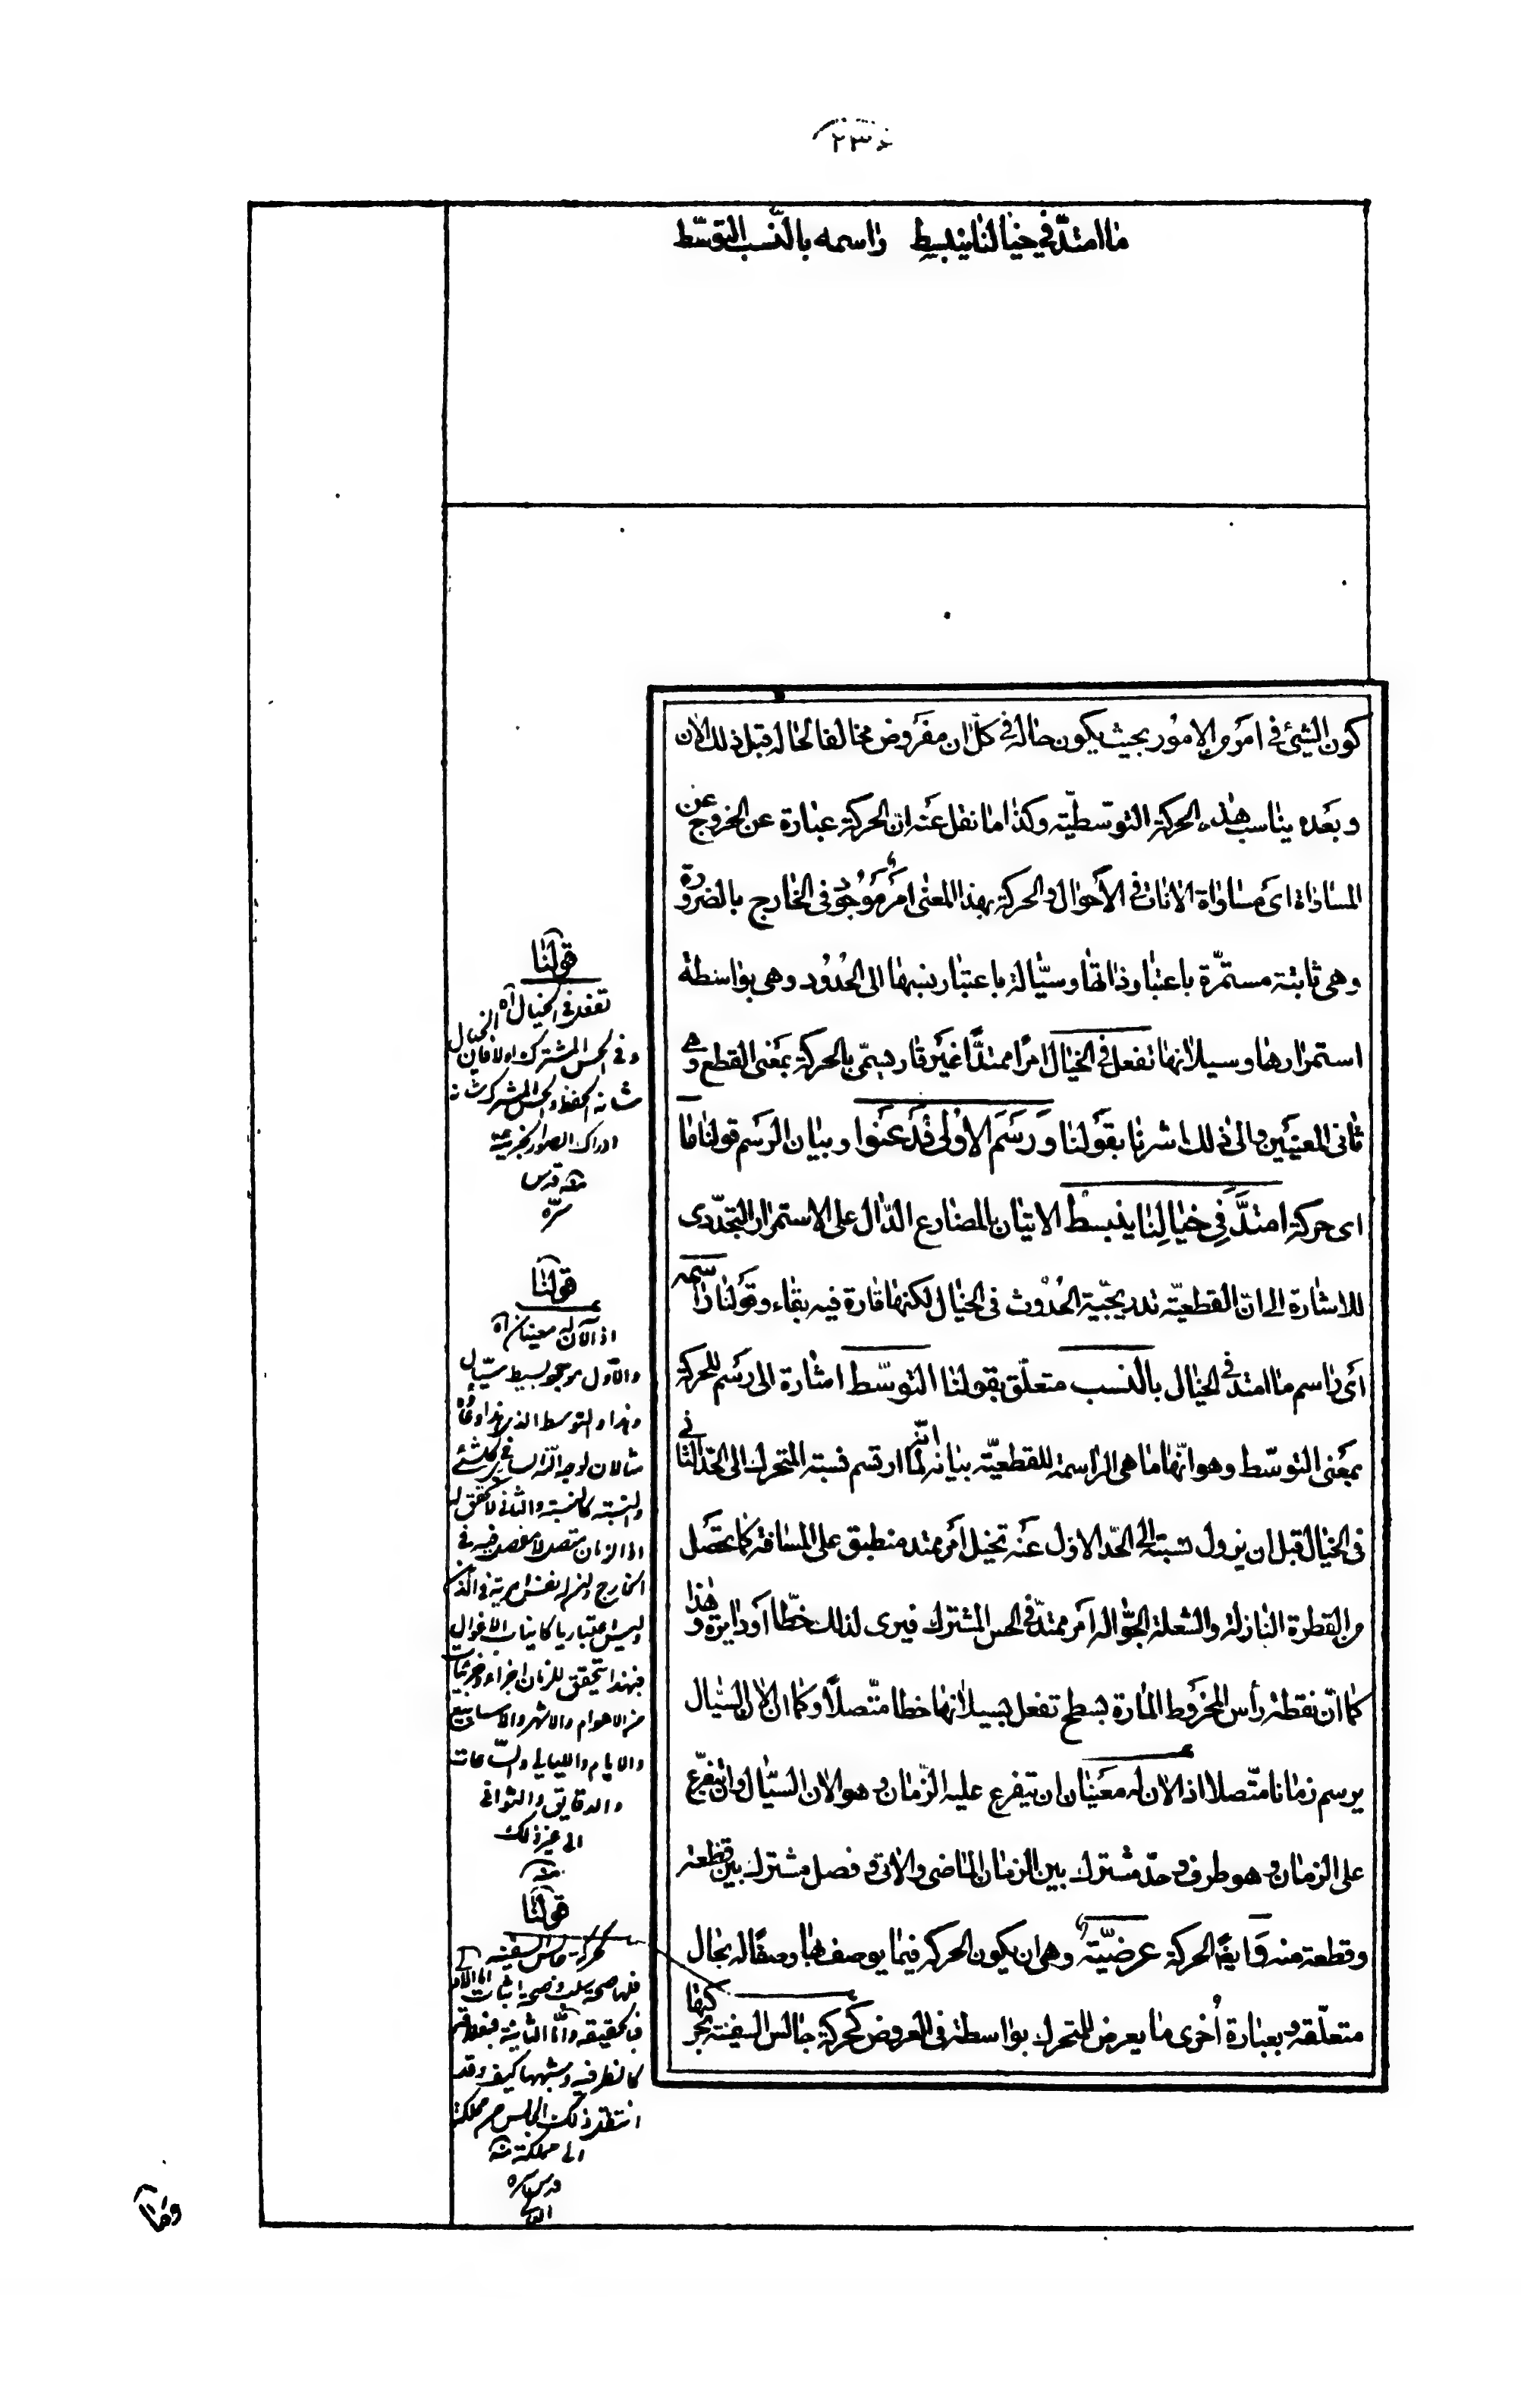 ما امتدّ في خيالنا ينبسط راسمه بالنّسب التوسّط
كون الشيئ في امر من الامور بحيث يكون حاله في كلّ ان مفروض مخالفا لحاله قبل ذلك الان
وبعده يناسب هذه الحركة التوسّطيّة وكذا ما نقل عنه ان الحركة عبارة عن الخروج عن
المساواة اى مساواة الانات في الأحوال والحركة بهذا المعنى امر موجود في الخارج بالضرورة
وهى ثابتة مستمرّة باعتبار ذاتها وسيّالة باعتبار نسبها الى الحدود وهى بواسطة
استمرارها وسيلانها تفعل في الخيال امرا ممتدّا غير قار يسمّى بالحركة بمعنى القطع وهى
ثانى المعنيين والى ذلك اشرنا بقولنا ورسم الاولى قد عنوا وبيان الرسم قولنا ما
اى حركة امتدّ في خيالنا ينبسط الاتيان بالمضارع الدّال على الاستمرار التجدّدى
للاشارة الى ان القطعيّة تدريجيّة الحدوث في الخيال لكنها قارة فيه بقاء وقولنا راسمه
اى راسم ما امتد في الخيال بالنسب متعلّق بقولنا التوسّط اشارة الى رسم للحركة
بمعنى التوسّط وهو انّها ما هى الراسمة للقطعيّة بيانه انّه لما ارتسم نسبة المتحرك الى الحدّ الثانى
في الخيال قبل ان يزول نسبته الى الحدّ الاول عنه تخيل امر ممتد منطبق على المسافة كما يحصل
من القطرة النازلة والشعلة الجوّاله امر ممتدّ في الحس المشترك فيرى لذلك خطّا أو دايرة وهذا
كما انّ نقطة رأس المخروط المارة بسطح تفعل بسيلانها خطا متّصلا وكما ان الان السيّال
يرسم زمانا متّصلا اذ الان له معنيان ان يتفرع عليه الزّمان وهو الان السيّال وان يتفرّع
على الزمان وهو طرف وحدّ مشترك بين الزمان الماضى والاتى وفصل مشترك بين قطعة
وقطعة منه وايضا الحركة عرضيّة وهى ان يكون الحركه فيما يوصف بها وصفا له بحال
متعلّقه وبعبارة أخرى ما يعرض للمتحرك بواسطة في العروض كحركة جالس السفينة بحركتها
قولنا
تفعل في الخيال آه
وفى الحس المشترك اولا فان الخيال
شانه الحفظ والحس المشترك شانه
ادراك الصور الجزئية
منه قدس
سرّه
قولنا
اذ الآن له معنيان آه
والاول موجود بسيط سيّال
والنسبة كالنسبة والثانى لا تحقق له
فبهذا يتحقق للزمان اجزاء وجزئيات
والايام والليالى والساعات
والدقايق والثوانى
الى غير ذلك
منه
قولنا
كحركة جالس السفينه
انتقل ذلك الجالس من مملكة
الى مملكة منه
قدس سره
وما